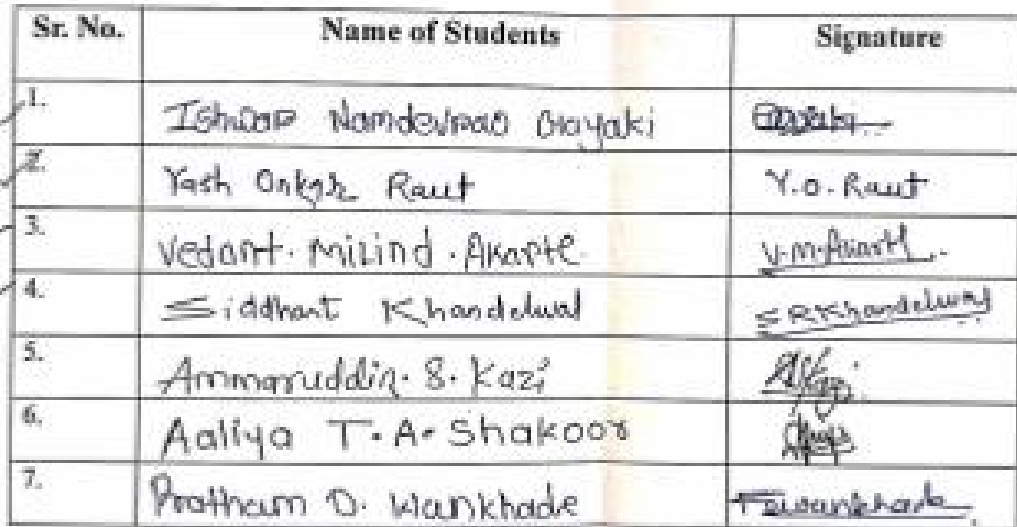 Sr. No. Name of Students Signature
1. Ishwar Namdevrao Gayaki
2. Yash Onkar Raut Y.O. Raut
3. Vedant. Milind. Akarte. V.M.Akarte.
4. Siddhant Khandelwal S R Khandelwal
5. Ammaruddin. S. Kazi
6. Aaliya T. A. Shakoor
7. Pratham D. Wankhade